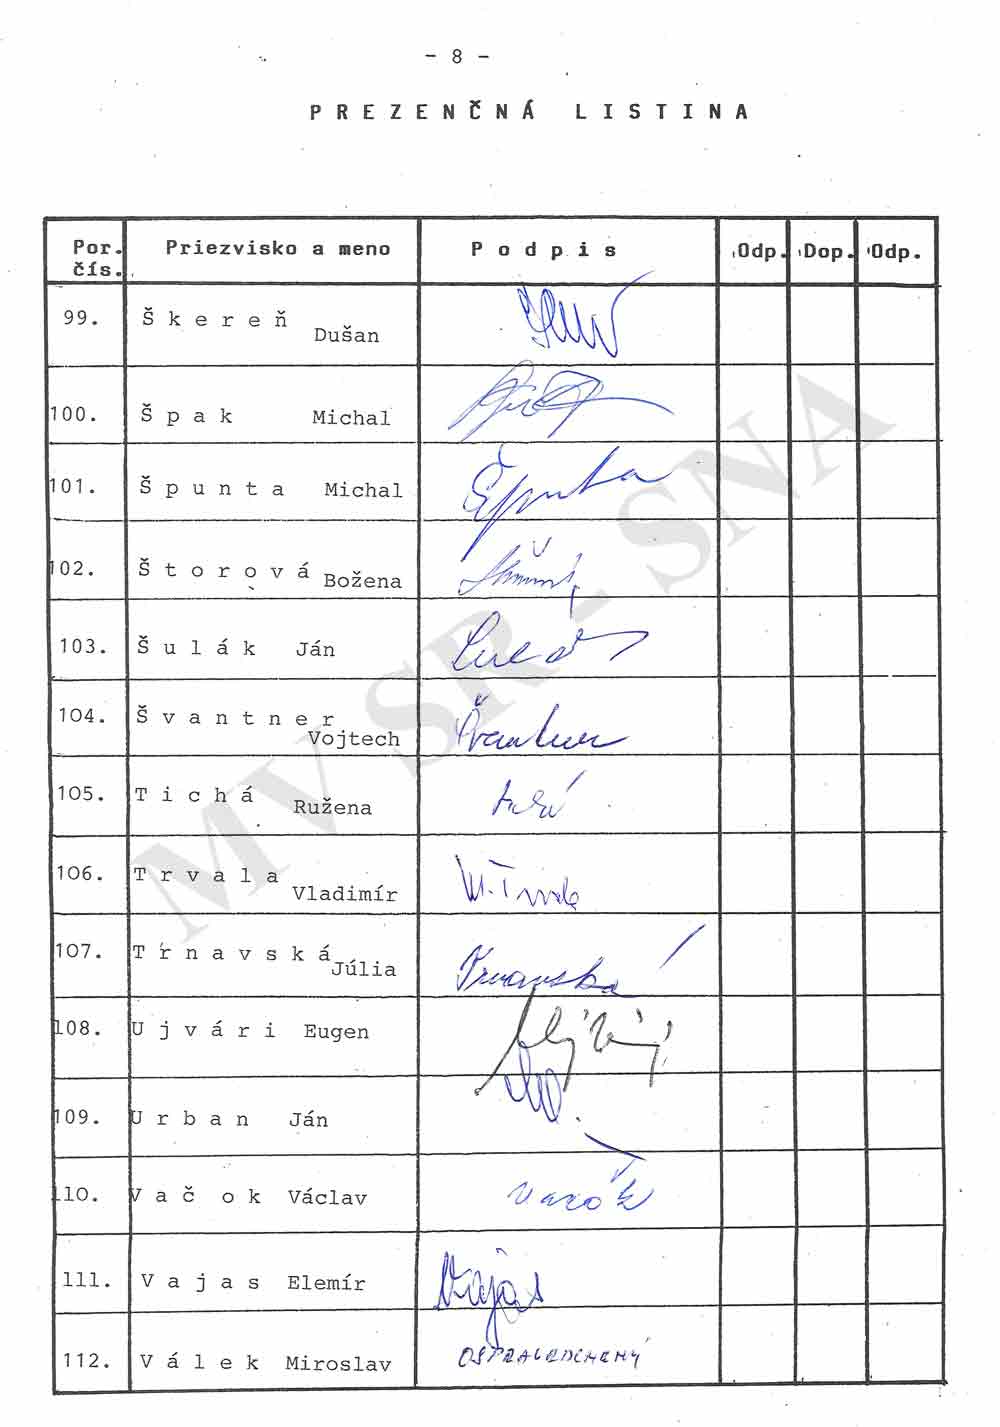 - 8 -
PREZENČNÁ LISTINA
Por. čís. Priezvisko a meno Podpis Odp. Dop. Odp.
99. Škereň Dušan
100. Špak Michal
101. Špunta Michal Špunta
102. Štorová Božena
103. Šulák Ján
104. Švantner Vojtech
105. Tichá Ružena
106. Trvala Vladimír
107. Trnavská Júlia Trnavská
108. Ujvári Eugen
109. Urban Ján
110. Vačok Václav
111. Vajas Elemír Vajas
112. Válek Miroslav OSPRAVEDLNENÝ
MV SR - SNA